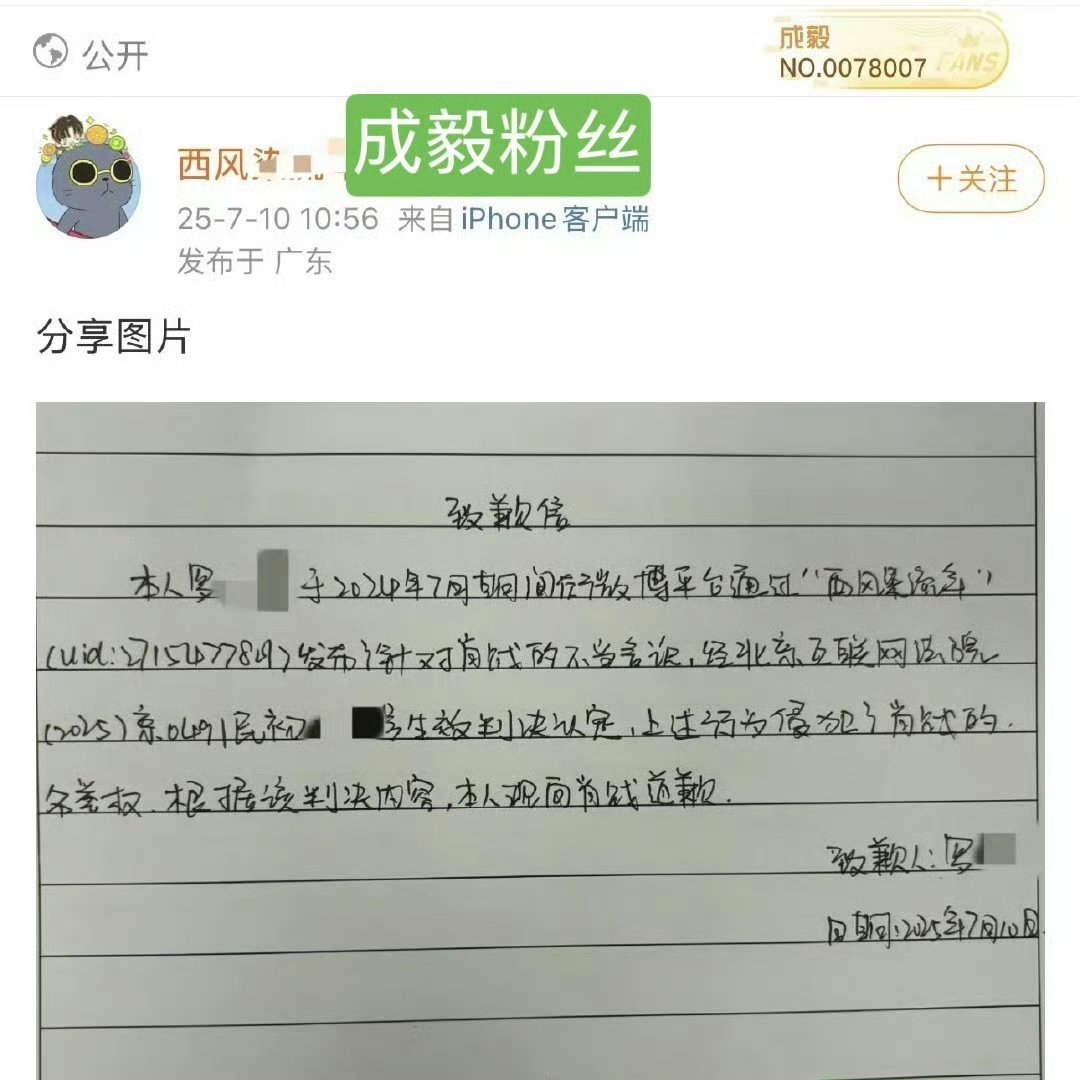 公开
成毅
NO.0078007
FANS
西风
成毅粉丝
+关注
25-7-10 10:56 来自 iPhone客户端
发布于 广东
分享图片
致歉信
本人罗 于2024年7月期间在微博平台通过"西风 流年"
(uid: )发布了针对肖战的不当言论,经北京互联网法院
(2025)京0491民初 号生效判决认定,上述行为侵犯了肖战的
名誉权.根据该判决内容,本人现向肖战道歉.
致歉人:罗
日期:2025年7月10日